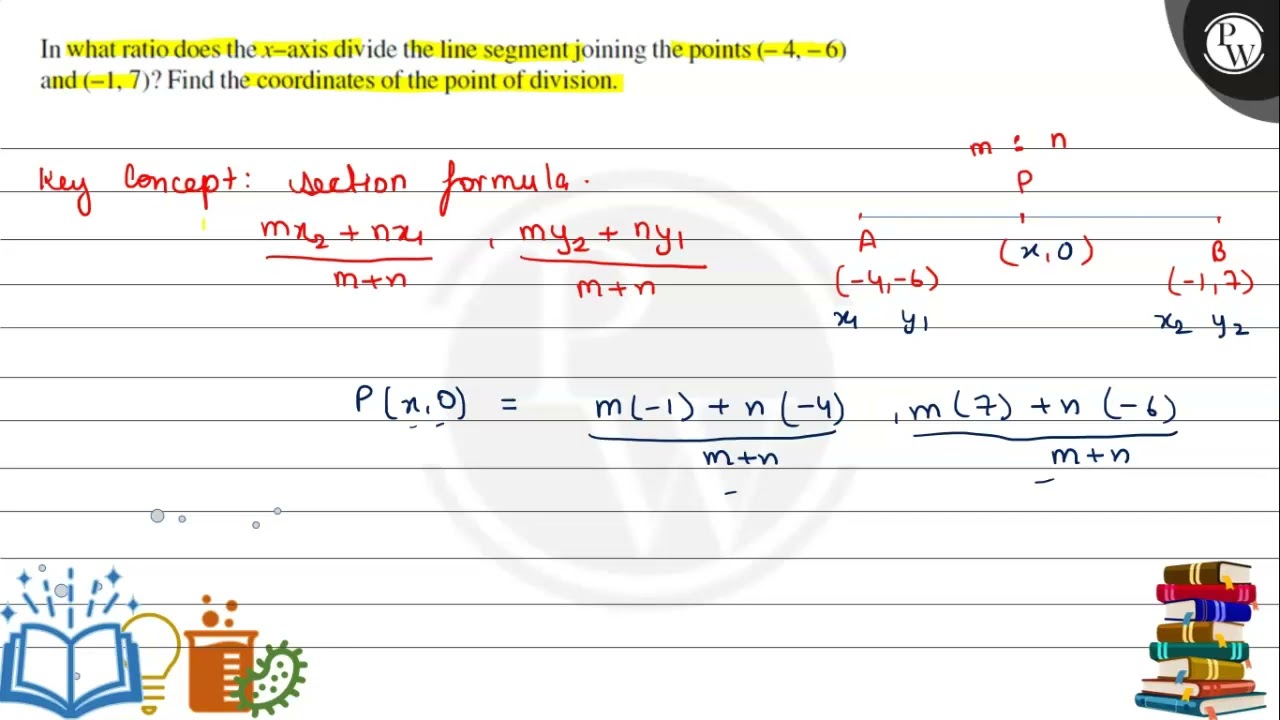 In what ratio does the x–axis divide the line segment joining the points (– 4, – 6)
and (–1, 7)? Find the coordinates of the point of division.
PW
m : n
Key Concept: section formula.
P
mx₂ + nx₁ / m+n , my₂ + ny₁ / m+n
A (x,0) B
(-4,-6) (-1,7)
x₁ y₁ x₂ y₂
P(x,0) = m(-1) + n(-4) / m+n , m(7) + n(-6) / m+n